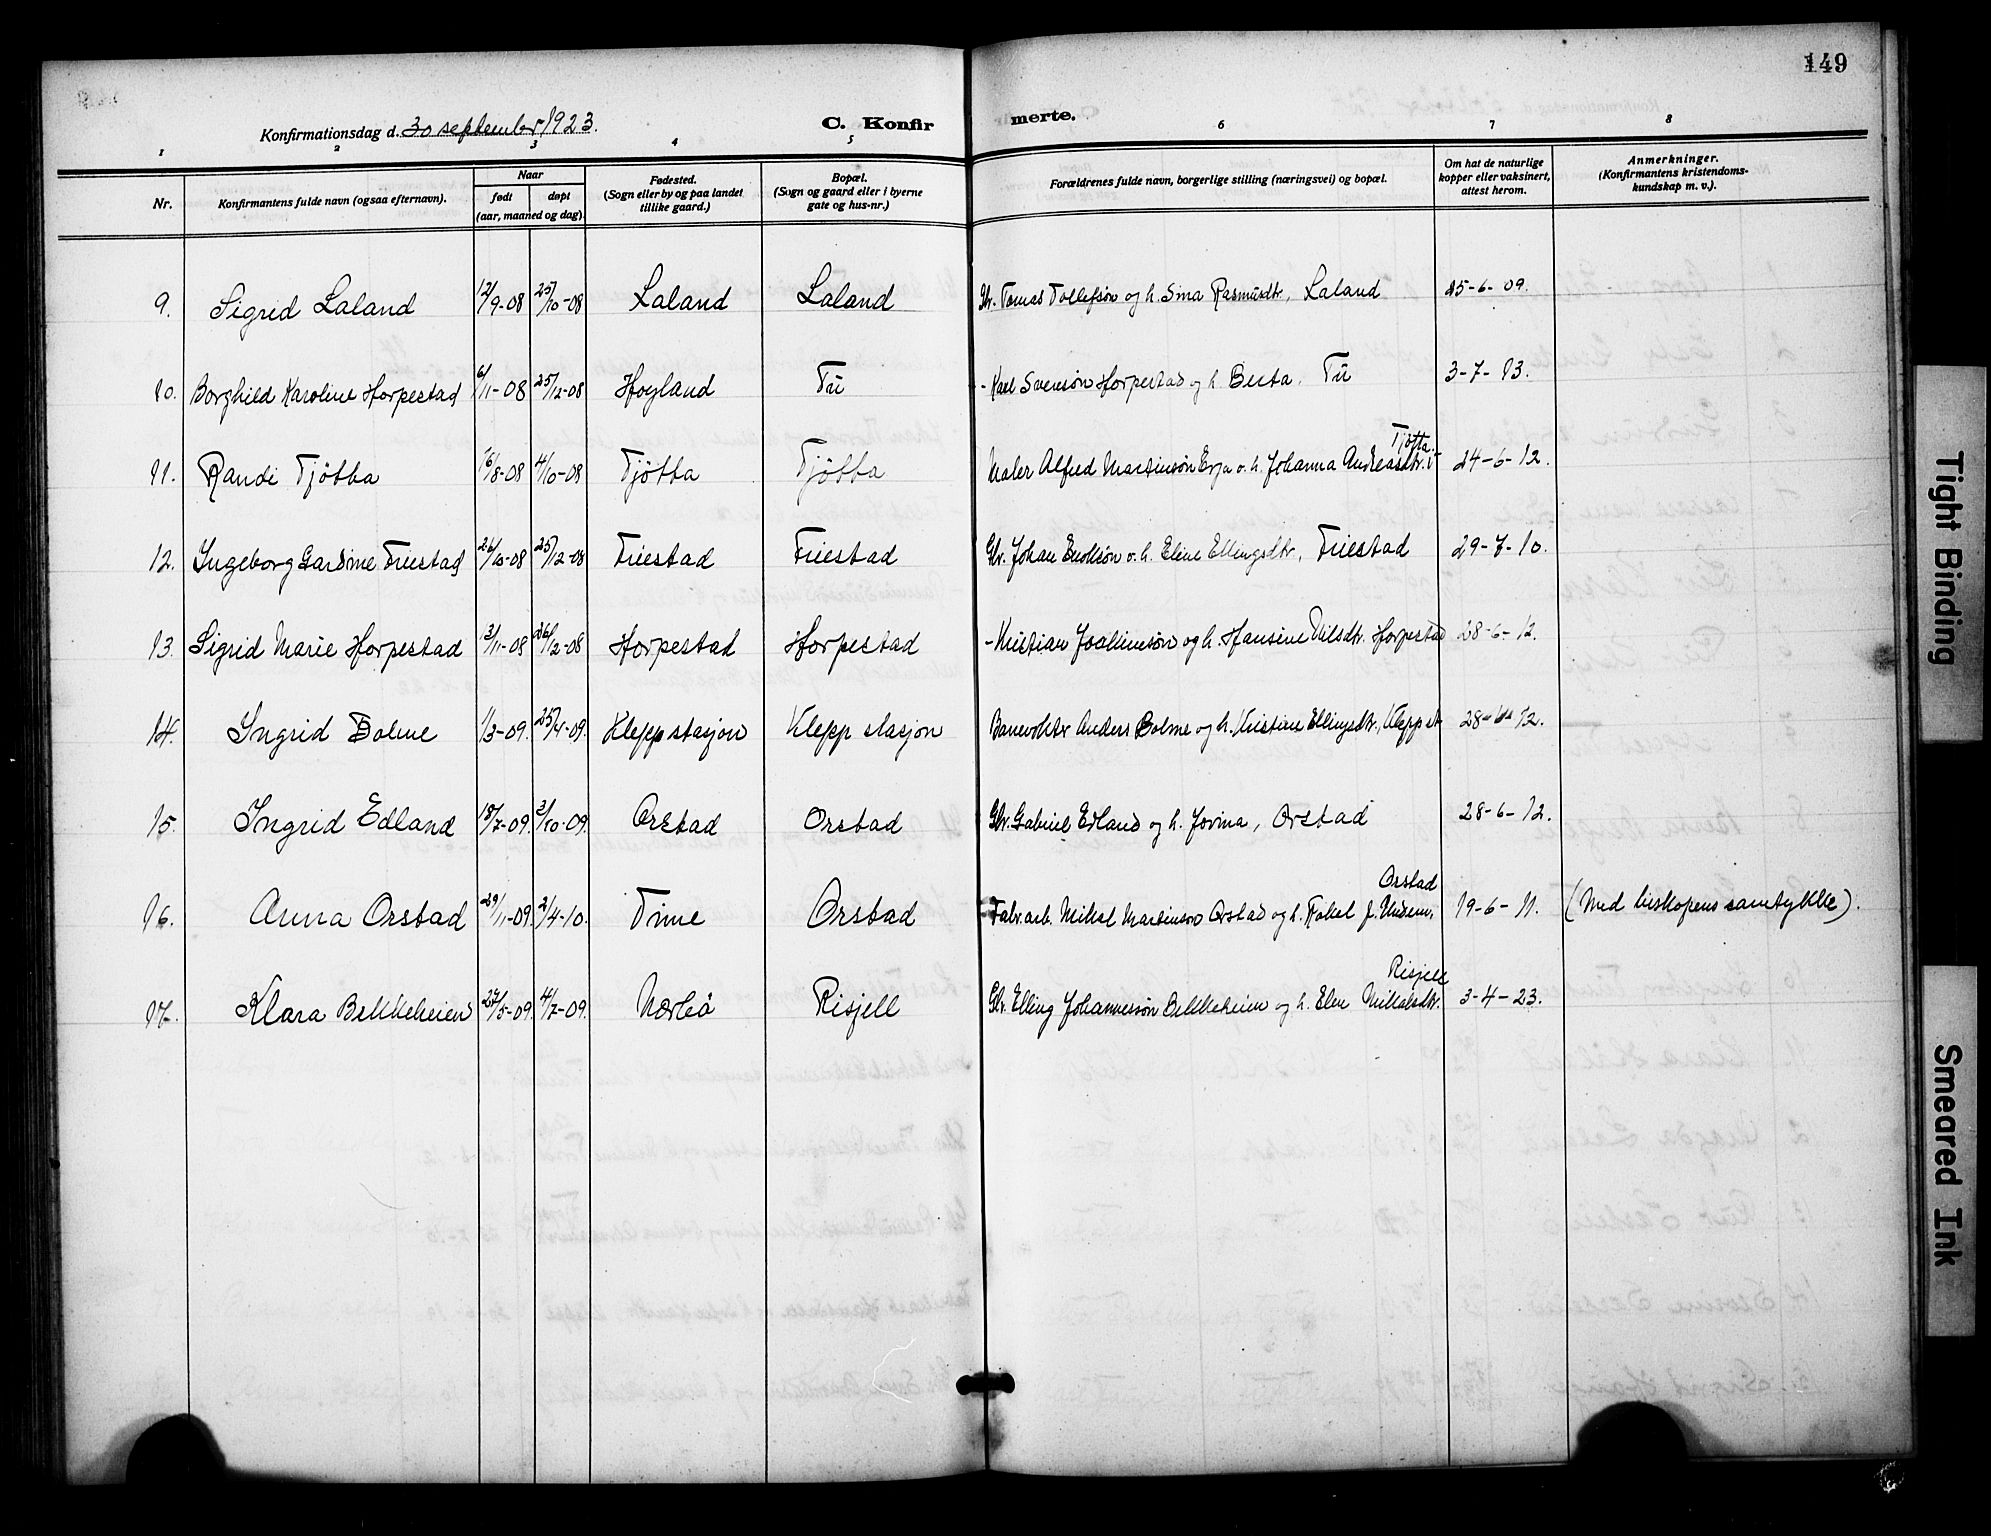 149
Konfirmationsdag d. 30 september 1923.
C. Konfirmerte.
1 2 3 4 5 6 7 8
Nr.
Konfirmantens fulde navn (ogsaa efternavn).
Naar
født døpt
(aar, maaned og dag).
Fødested.
(Sogn eller by og paa landet
tillike gaard.)
Bopæl.
(Sogn og gaard eller i byerne
gate og hus-nr.)
Forældrenes fulde navn, borgerlige stilling (næringsvei) og bopæl.
Om hat de naturlige
kopper eller vaksinert,
attest herom.
Anmerkninger.
(Konfirmantens kristendoms-
kundskap m. v.).
9. Sigrid Laland 12/9-08 25/10-08 Laland Laland Gbr. Tomas Tollefsøn og h. Sina Rasmusdtr., Laland 25-6-09.
10. Borghild Karoline Horpestad 6/11-08 25/12-08 Høyland Tu - Karl Svensøn Horpestad og h. Berta. Tu 3-7-13.
Tjøtta
11. Randi Tjøtta 16/8-08 4/10-08 Tjøtta Tjøtta Maler Alfred Martinsøn Erga o. h. Johanna Andreasdtr. 24-6-12.
12. Ingeborg Gardine Friestad 26/10-08 25/12-08 Friestad Friestad Gbr. Johan Enoksøn o. h. Eline Ellingsdtr., Friestad 29-7-10.
13. Sigrid Marie Horpestad 13/11-08 26/12-08 Horpestad Horpestad - Kristian Joakimsøn og h. Hansine Nilsdtr. Horpestad 28-6-12.
14. Ingrid Bolme 1/3-09. 25/4-09. Klepp stasjon Klepp stasjon Banevokter Anders Bolme og h. Kristine Ellingsdtr., Klepp st 28-6-12.
15. Ingrid Edland 18/7-09. 3/10-09. Orstad Orstad Gbr. Gabriel Edland og h. Jorina, Orstad 28-6-12.
Orstad
16. Anna Orstad 29/11-09. 2/4-10. Time Orstad Fabr.arb. Mikal Martinsøn Orstad og h. Rakel J. Undem, 19-6-11. (Med biskopens samtykke).
Risjell
17. Klara Bekkeheien 27/5-09. 4/7-09. Nærbø Risjell Gbr. Elling Johannessøn Bekkeheien og h. Elen Mikalsdtr. 3-4-23.
Tight Binding
Smeared Ink